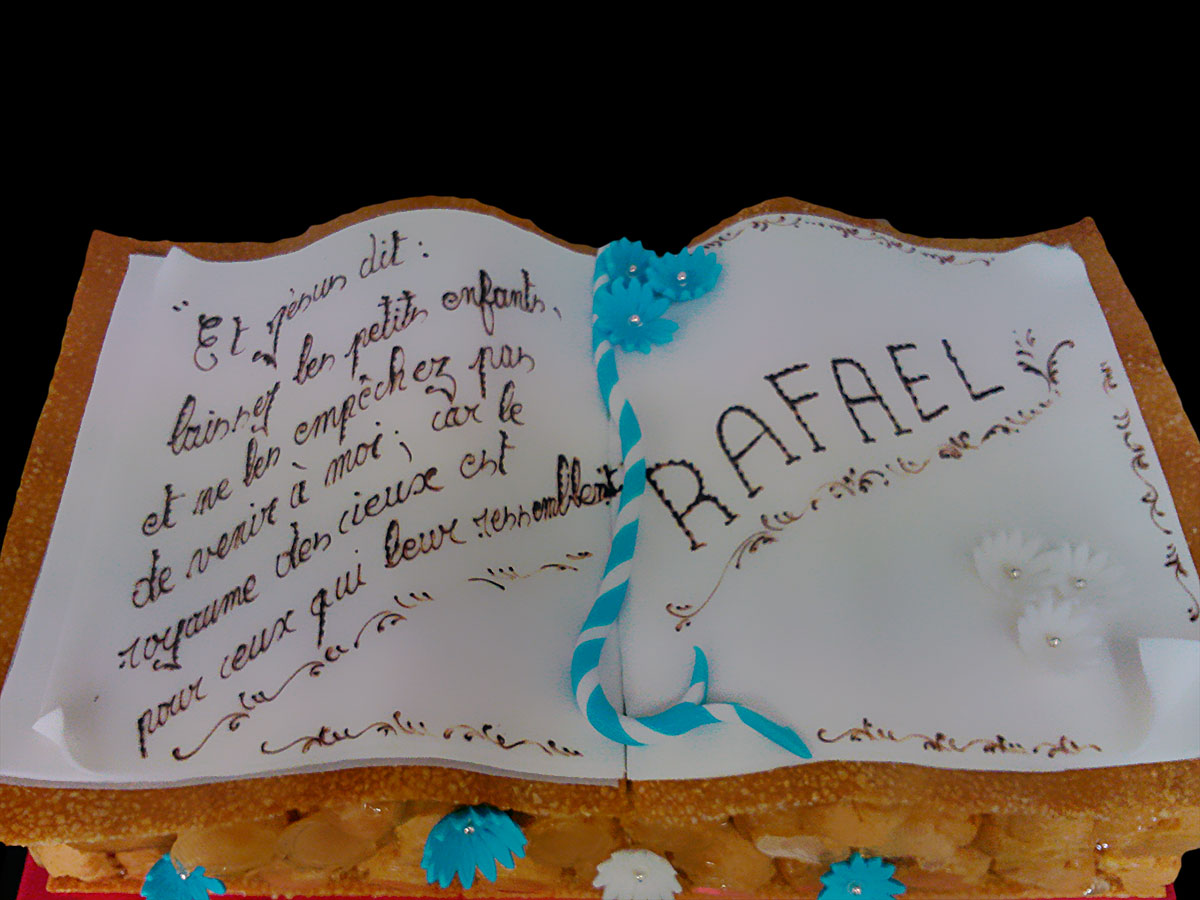 "Et Jésus dit :
laissez les petits enfants,
et ne les empêchez pas
de venir à moi ; car le
royaume des cieux est
pour ceux qui leur ressemblent
RAFAEL